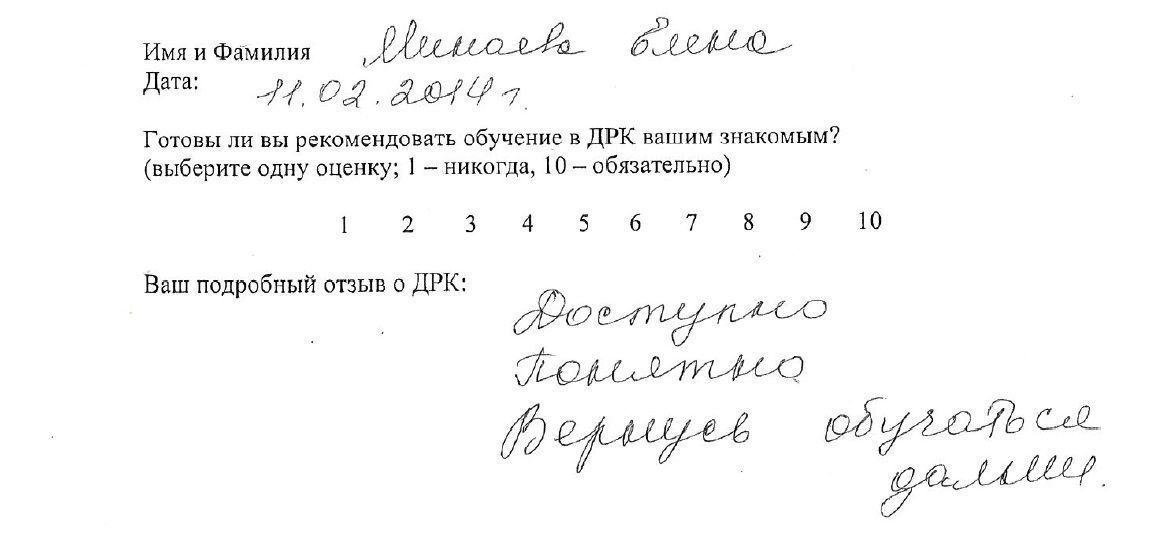 Имя и Фамилия Минаева Елена
Дата: 11.02.2014г.
Готовы ли вы рекомендовать обучение в ДРК вашим знакомым?
(выберите одну оценку; 1 – никогда, 10 – обязательно)
1 2 3 4 5 6 7 8 9 10
Ваш подробный отзыв о ДРК:
Доступно
Понятно
Вернусь обучаться
дальше.